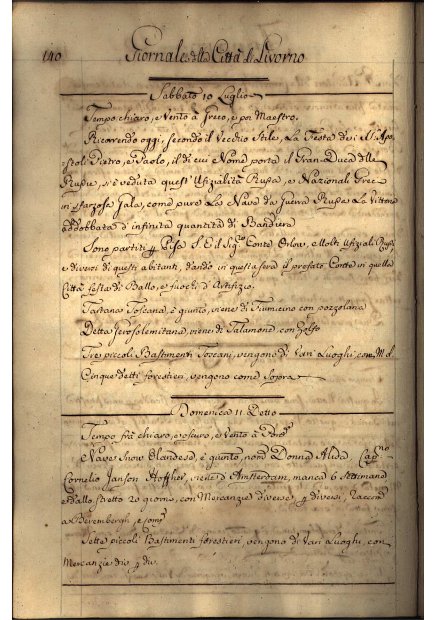 140 Giornale della Città di Livorno
Sabbato 10 Luglio
Tempo chiaro, e Vento à Greco, e poi Maestro.
Ricorrendo oggi, secondo il Vecchio Stile, La Festa dei SS. Apo-
stoli Pietro, e Paolo, il di cui Nome porta il Gran Duca delle
Russie, si è veduta quest' Ufizialità Russa, e Nazionali Grec
in sfarzosa Gala, come pure La Nave da Guerra Russa La Vittoria
addobbata d'infinita quantità di Bandiere
Sono partiti p Pisa S. E. il Sig.r Conte Orlow, e Molti Ufiziali Russi
e diversi di questi abitanti, dando in questa sera il prefato Conte in quella
Città festa di Ballo, e fuochi d'Artifizio.
Tartana Toscana, è giunta, viene di Fiumicino con pozzolana
Detta Jerosolemitana, viene di Talamone, con Zolfo
Tre piccoli Bastimenti Toscani, vengono di Vari Luoghi, con M. d.
Cinque detti forestieri, vengono come Sopra
Domenica 11 Detto
Tempo frà chiaro, e oscuro, e Vento à
Nave Snow Olandese, è giunto, nom.o Donna Alida, Cap.no
Cornelio Janson Hoffher, viene d'Amsterdam, manca 6 settimane
e dallo stretto 20 giorni, con Mercanzie diverse, p diversi, racc.o
a Berembergh, e comp.i
Sette piccoli Bastimenti forestieri, vengono di Vari Luoghi, con
Mercanzie div. p div.